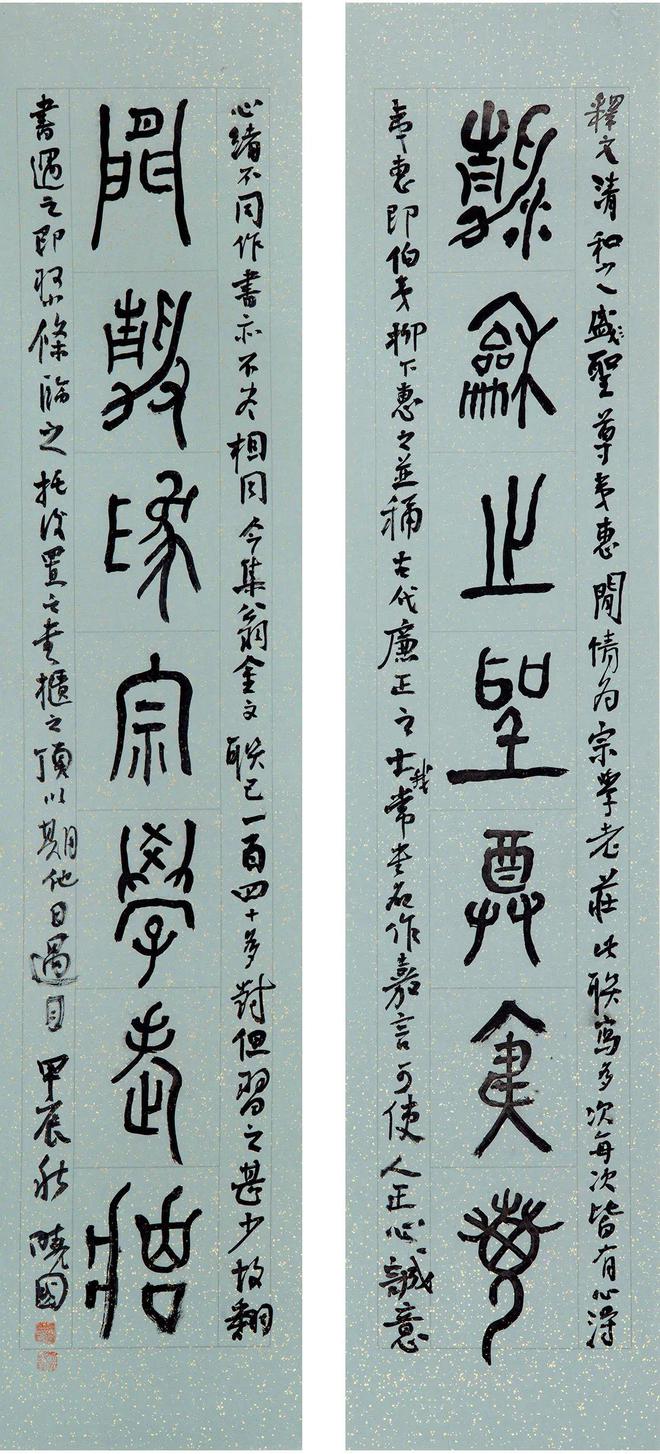 釋文清和之盛聖尊夷惠閒倩为宗學老莊此联寫多次每次皆有心得
靜龢之聖尊夷惠
夷惠即伯夷柳下惠之並稱古代廉正之士我常书名作嘉言可使人正心誠意
心緒不同作書亦不尽相同今集翁金文联已一百四十多對但習之甚少故翻
閒靜為宗學老莊
書遇之即條臨之托後置之书櫃之頂以期他日過目甲辰秋曉國